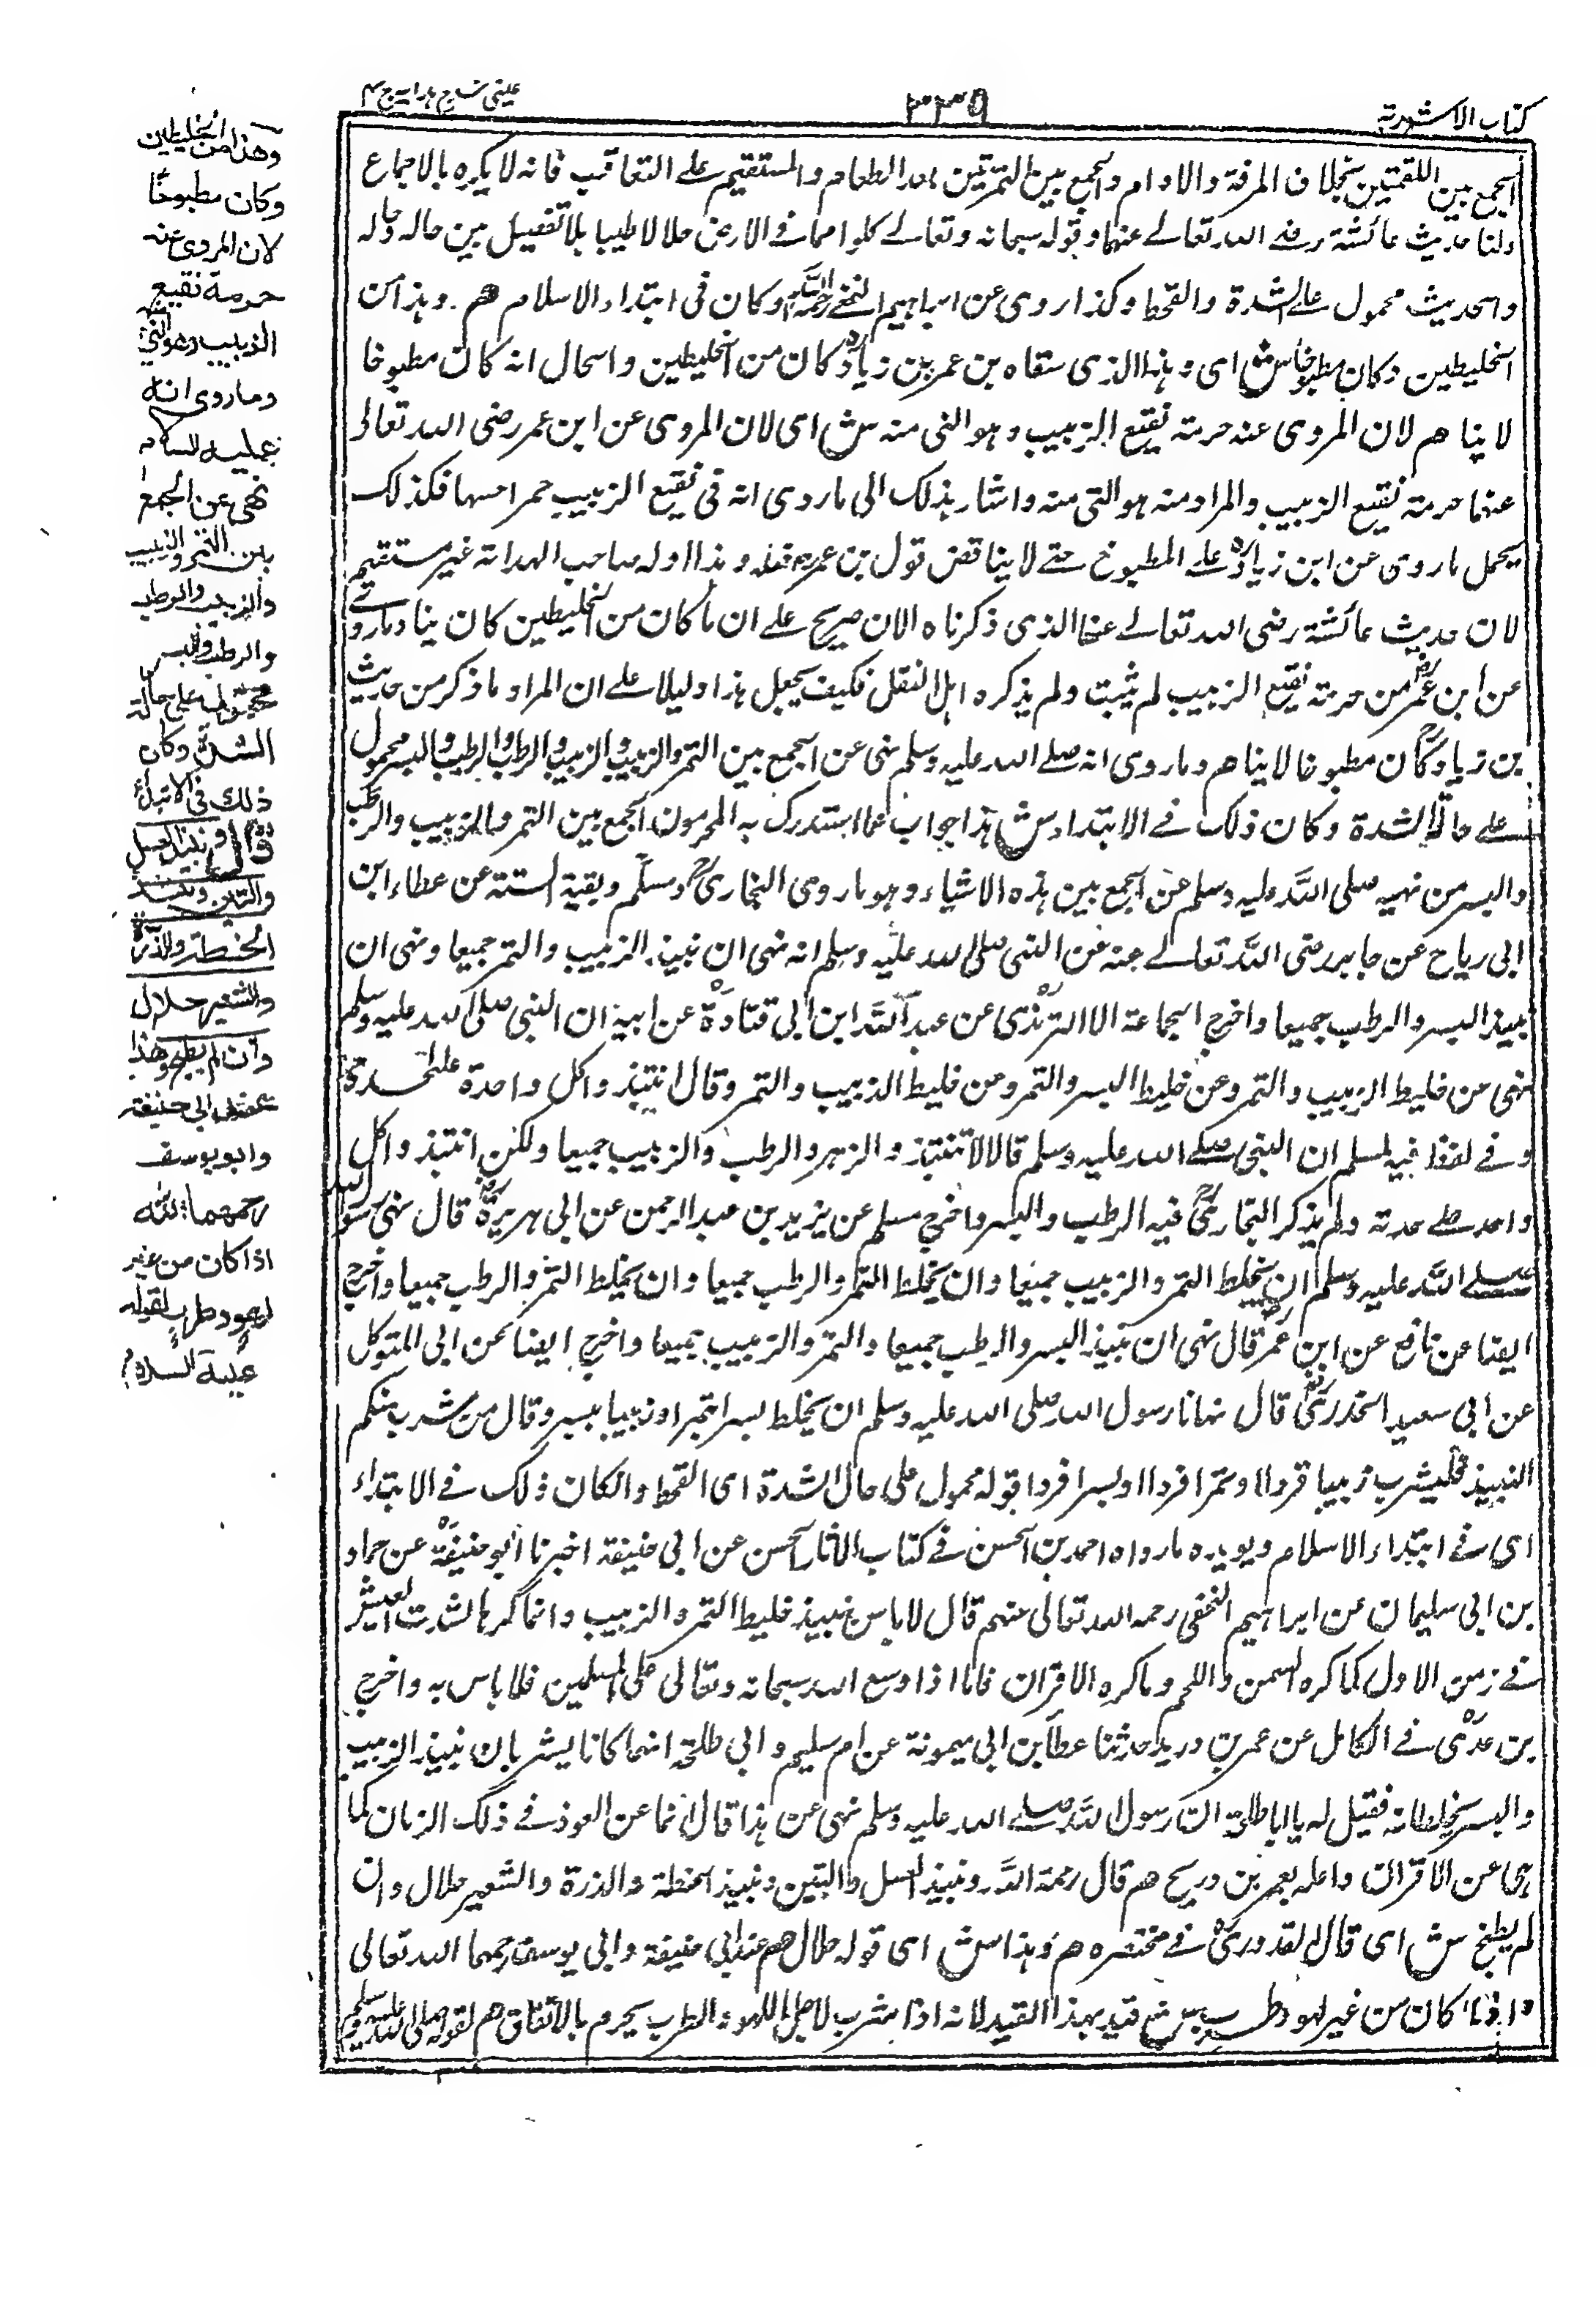 كتاب الاشربة
٣٣٩
عيني شرح هداية ج ٤
الجمع بين اللقمتين بخلاف المرقة والادام والجمع بين التمرتين الطعام والمستقيم على التعاقب فانه لا يكره بالاجماع
ولنا حديث عائشة رضى الله تعالى عنها وقوله سبحانه وتعالى كلوا مما فى الارض حلالا طيبا بلا تفصيل بين حاله وحاله
والحديث محمول على الشدة والقحط وكذا روى عن ابراهيم النخعى رحمه الله وكان فى ابتداء الاسلام هم وهذا من
الخليطين وكان مطبوخا ش اى وهذا الذى سقاه بن عمر بن زياد كان من الخليطين والحال انه كان مطبوخا
لا ينا هم لان المروى عنه حرمته نقيع الزبيب وهو النى منه ش اى لان المروى عن ابن عمر رضى الله تعالى
عنهما حرمة نقيع الزبيب والمراد منه هو النى منه واشار بذلك الى ما روى انه فى نقيع الزبيب خمر احسها فكذلك
يحمل ما روى عن ابن زياد على المطبوخ حتى لا يناقض قول بن عمر فعله وهذا اوله صاحب الهداية غير مستقيم
لان حديث عائشة رضى الله تعالى عنها الذى ذكرناه الان صريح على ان ما كان من الخليطين كان ينا وما روى
عن ابن عمر من حرمة نقيع الزبيب لم يثبت ولم يذكره اهل النقل فكيف يجعل هذا دليلا على ان المراد ما ذكر من حديث
بن زياد وكان مطبوخا لا ينا هم وما روى انه صلى الله عليه وسلم نهى عن الجمع بين التمر والزبيب والزبيب والرطب والرطب والبسر محمول
على حالة الشدة وكان ذلك فى الابتداء ش هذا جواب عما استدرك به المحرمون الجمع بين التمر والزبيب والرطب
والبسر من نهيه صلى الله عليه وسلم عن الجمع بين هذه الاشياء وهو ما روى البخارى ومسلم وبقية الستة عن عطاء ابن
ابى رياح عن جابر رضى الله تعالى عنه عن النبى صلى الله عليه وسلم انه نهى ان نبيذ الزبيب والتمر جميعا ونهى ان
نبيذ البسر والرطب جميعا واخرج الجماعة الا الترمذى عن عبد الله ابن ابى قتادة عن ابيه ان النبى صلى الله عليه وسلم
نهى عن خليط الزبيب والتمر وعن خليط البسر والتمر ومن خليط الزبيب والتمر وقال انتبذوا كل واحدة على حدته
وفى لفظ فيه لمسلم ان النبى صلى الله عليه وسلم قال لا تنتبذ والزهر والرطب والزبيب جميعا ولكن انتبذوا كل
واحد على حدته ولم يذكر البخارى فيه الرطب والبسر واخرج مسلم عن يزيد بن عبد الرحمن عن ابى هريرة قال نهى رسول الله
صلى الله عليه وسلم ان يخلط التمر والزبيب جميعا وان يخلط التمر والرطب جميعا وان يخلط التمر والرطب جميعا واخرج
ايضا عن نافع عن ابن عمر قال نهى ان نبيذ البسر والرطب جميعا والتمر والزبيب جميعا واخرج ايضا عن ابى المتوكل
عن ابى سعيد الخدرى قال نهانا رسول الله صلى الله عليه وسلم ان يخلط بسرا بتمر او زبيبا ببسر وقال من شرب منكم
النبيذ فليشرب زبيبا فردا او تمرا فردا او بسرا فردا قوله محمول على حال الشدة اى القحط والكان ذلك فى الابتداء
اى فى ابتداء الاسلام ويويده ما رواه احمد بن الحسن فى كتاب الاثار الحسن عن ابى حنيفة اخبرنا ابو حنيفة عن حماد
بن ابى سليمان عن ابراهيم النخعى رحمه الله تعالى عنهم قال لا باس بنبيذ خليط التمر والزبيب وانما كرها لشدت العيش
فى زمن الاول كما كره السمن واللحم وما كره الاقران فاما اذا وسع الله سبحانه وتعالى على المسلمين فلا باس به واخرج
بن عدى فى الكامل عن عمر بن دريد حدثنا عطا بن ابى ميمونة عن ام سليم وابى طلحة انهما كانا يشربان نبيذ الزبيب
والبسر يخلطانه فقيل له يا ابا طلحة ان رسول الله صلى الله عليه وسلم نهى عن هذا قال انما عن العوذ فى ذلك الزمان كما
نهى عن الاقران واعله بعمر بن دريح هم قال رحمة الله ونبيذ العسل والتين ونبيذ الحنطة والذرة والشعير حلال وان
لم يطبخ ش اى قال القدورى فى مختصره هم وهذا ش اى قوله حلال هم عند ابى حنيفة وابى يوسف رحمهما الله تعالى
اذا كان من غير لهو وطرب ش قيد بهذا القيد لانه اذا شرب لاجل اللهو والطرب يحرم بالاتفاق هم لقوله صلى الله عليه وسلم
وهذا من الخليطين
وكان مطبوخا
لان المروى عنه
حرمة نقيع
الزبيب وهو النى
وما روى انه
عليه السلام
نهى عن الجمع
بين التمر والزبيب
والزبيب والرطب
والرطب والبسر
محمول على حالة
الشدة وكان
ذلك فى الابتداء
قال ونبيذ العسل
والتين ونبيذ
الحنطة والذرة
والشعير حلال
وان لم يطبخ وهذا
عند ابى حنيفة
وابو يوسف
رحمهما الله
اذا كان من غير
لهو وطرب لقوله
عليه السلام